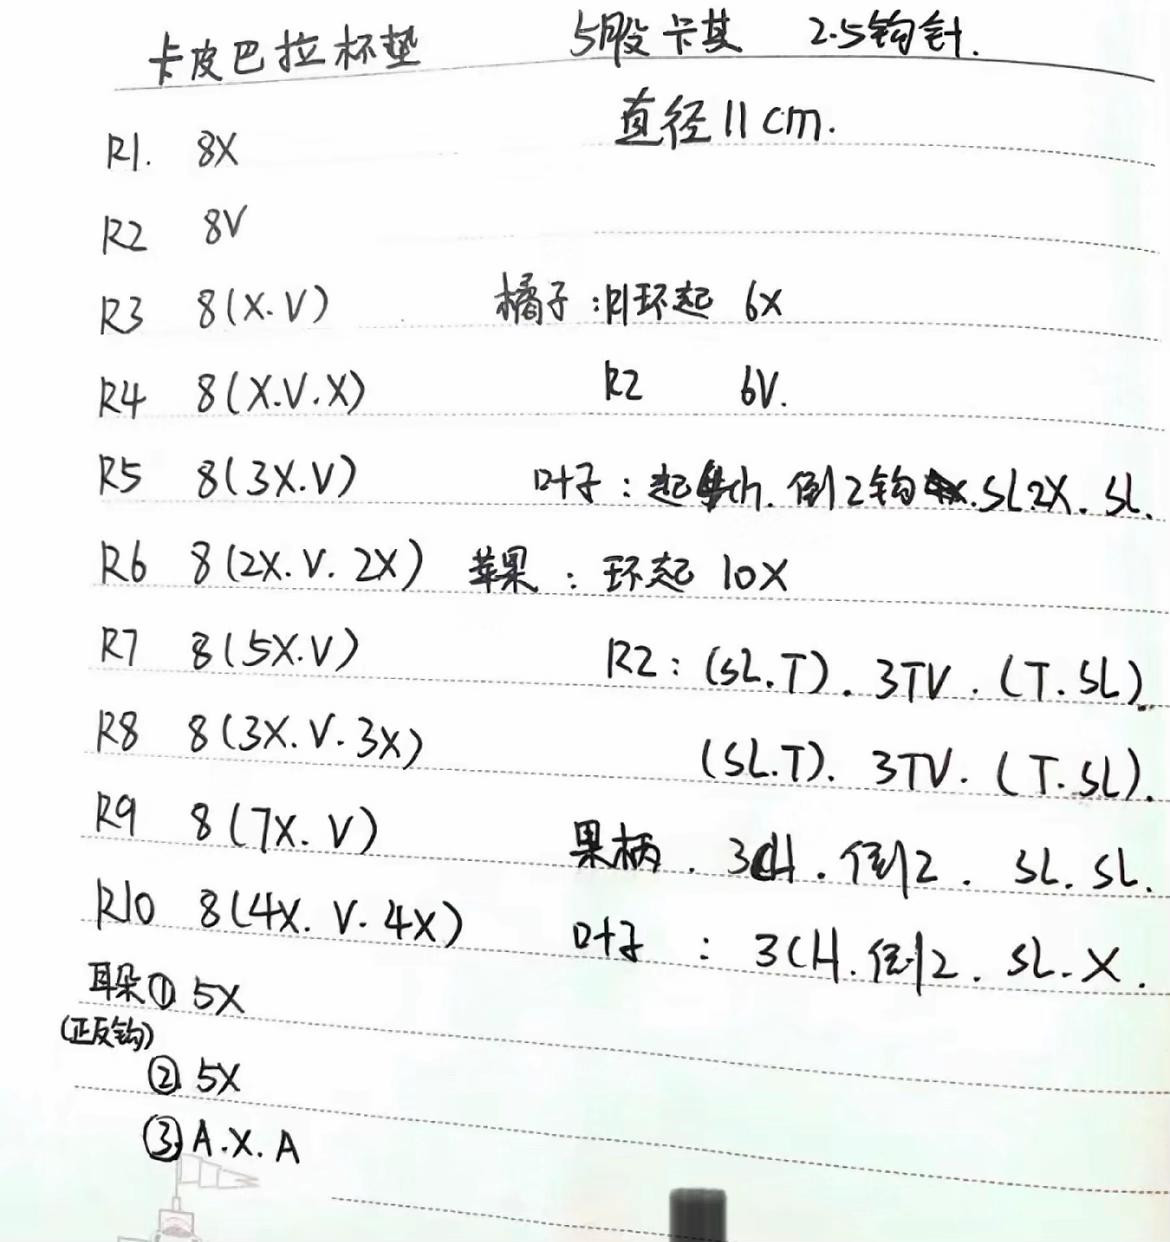 卡皮巴拉杯垫 5股卡其 2.5钩针.
直径11cm.
R1. 8X
R2 8V
R3 8(X.V) 橘子:R1环起 6X
R4 8(X.V.X) R2 6V.
R5 8(3X.V) 叶子:起 ch. 倒2钩 .SL.2X. SL.
R6 8(2X.V.2X) 苹果:环起 10X
R7 8(5X.V) R2:(SL.T). 3TV. (T.SL)
R8 8(3X.V.3X) (SL.T). 3TV. (T.SL).
R9 8(7X.V) 果柄. 3CH. 倒2. SL. SL.
R10 8(4X.V.4X) 叶子: 3CH. 倒2. SL.X.
耳朵① 5X
(正反钩)
② 5X
③ A.X.A